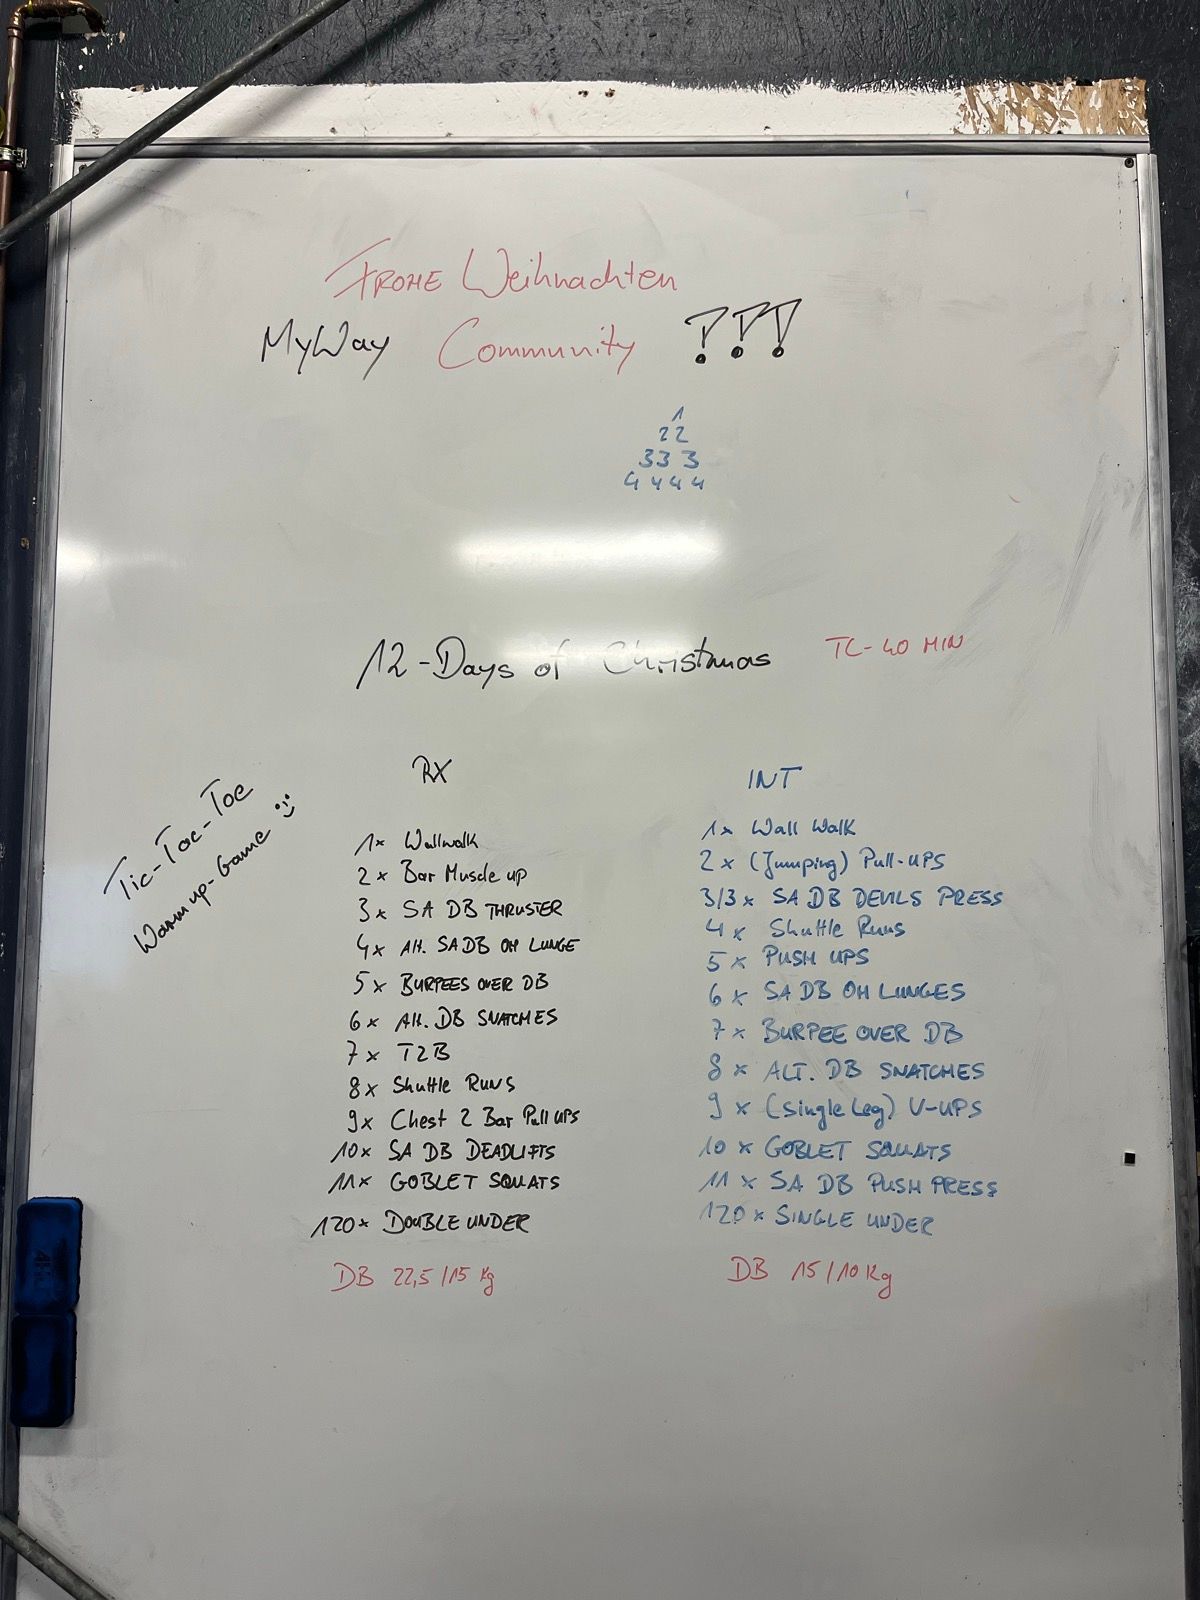 FROHE Weihnachten
MyWay Community !!!
1
22
33 3
4 4 4 4
12-Days of Christmas TC-40 MIN
Tic-Tac-Toe
Warm up-Game :)
RX
1x Wallwalk
2x Bar Muscle up
3x SA DB THRUSTER
4x Alt. SA DB OH LUNGE
5x BURPEES OVER DB
6x Alt. DB SNATCHES
7x T2B
8x Shuttle Runs
9x Chest 2 Bar Pull ups
10x SA DB DEADLIFTS
11x GOBLET SQUATS
120x DOUBLE UNDER
DB 22,5/15 kg
INT
1x Wall Walk
2x (Jumping) Pull-UPS
3/3x SA DB DEVILS PRESS
4x Shuttle Runs
5x PUSH UPS
6x SA DB OH LUNGES
7x BURPEE OVER DB
8x ALT. DB SNATCHES
9x (Single Leg) V-UPS
10x GOBLET SQUATS
11x SA DB PUSH PRESS
120x SINGLE UNDER
DB 15/10 kg